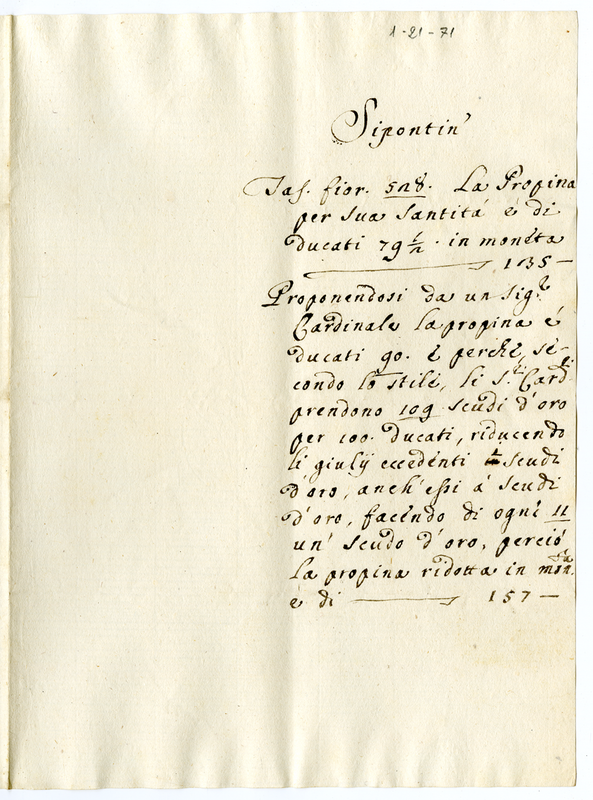 1-21-71
Sipontin'
Tas. fior. 528. La Propina
per Sua Santitá è di
ducati 79 1/2. in monéta
135 —
Proponendosi da un Sig.r
Cardinale la propina é
ducati 90. é perché, sé-
condo lo stilé, li S.ri Card.i
prendono 109 scudi d'oro
per 100. ducati, riducendo
li giulij eccédénti scudi
d'oro, anch'essi á scudi
d'oro, facéndo di ogni 11
un' scudo d'oro, perció
la propina ridotta in mon.ta
è di 157 —